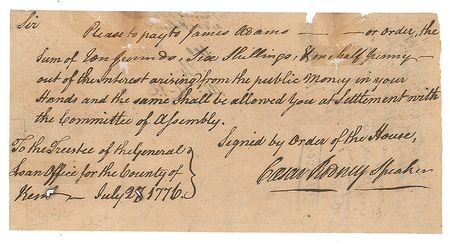 Sir
Please to pay to James Adams — — — or order, the
Sum of Ten pounds, Six Shillings, & one half penny —
out of the Interest arising from the public Money in your
Hands and the same shall be allowed You at Settlement with
the Committee of Assembly.
Signed by Order of the House,
To the Trustee of the General
Loan Office for the County of
Kent — July 28 1776
Cæsar Rodney Speaker